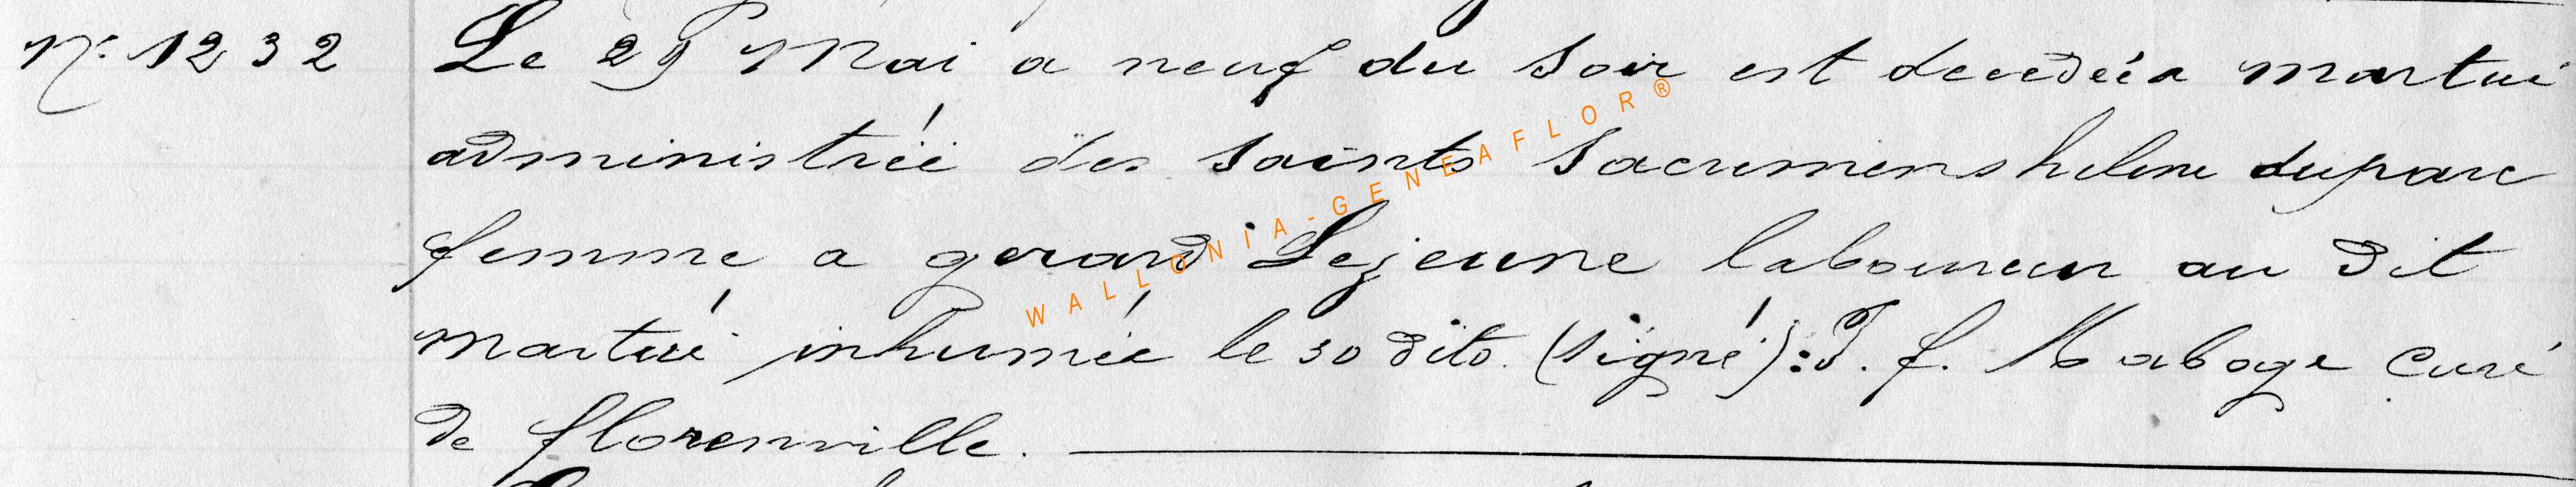 N° 1232 Le 29 Mai a neuf du soir est decedéé a martué
administréé des saints Sacremens helene duparc
femme a gerard Lejeune laboureur au dit
martué inhumée le 30 dito. (signé): J. f. Maboge curé
de florenville.
WALLONIA-GENEAFLOR®